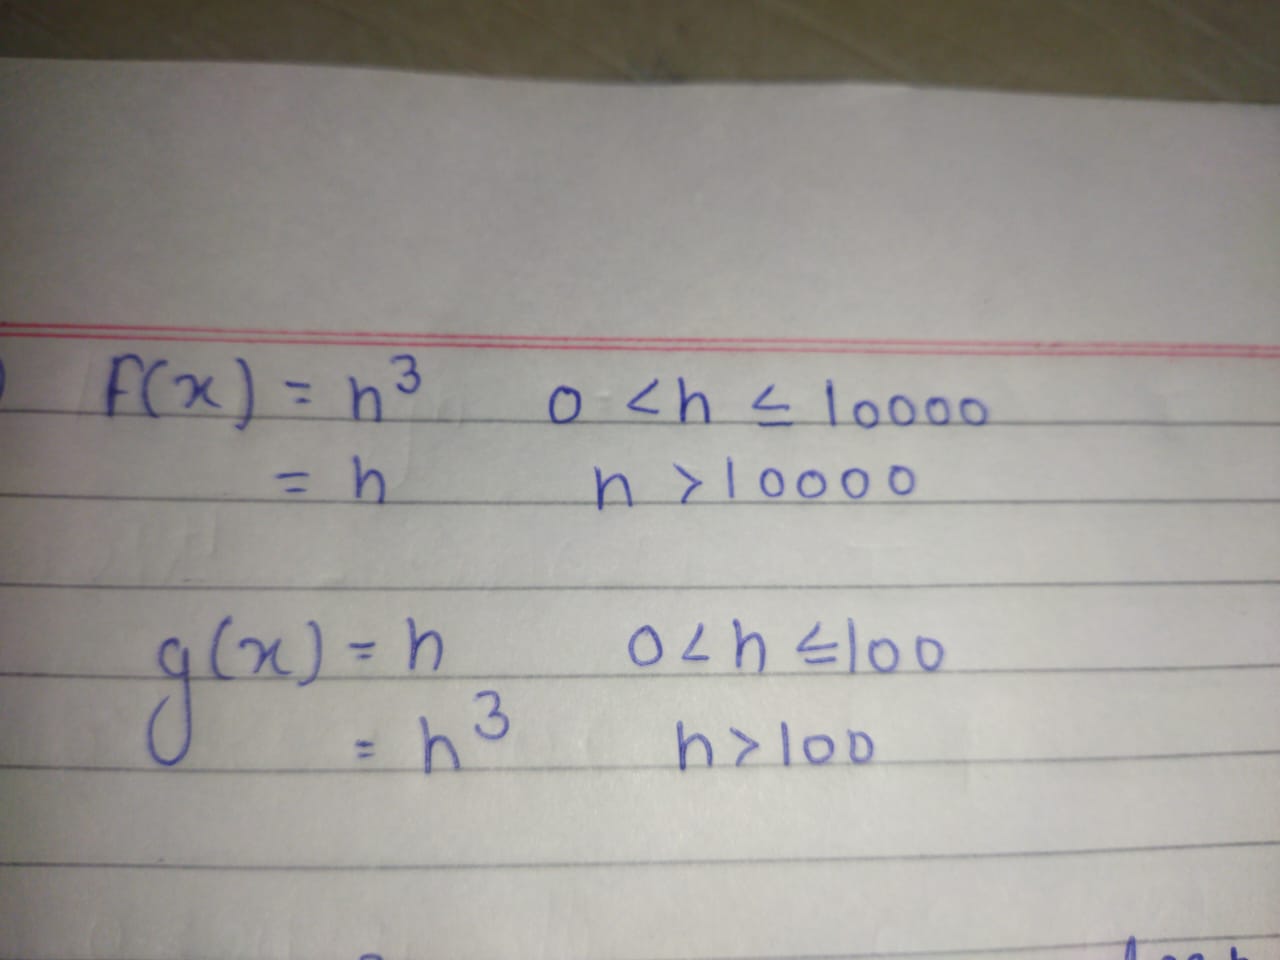 ) F(x) = n³ 0 < n ≤ 10000
= n n > 10000
g(x) = n 0 < n ≤ 100
= n³ n > 100